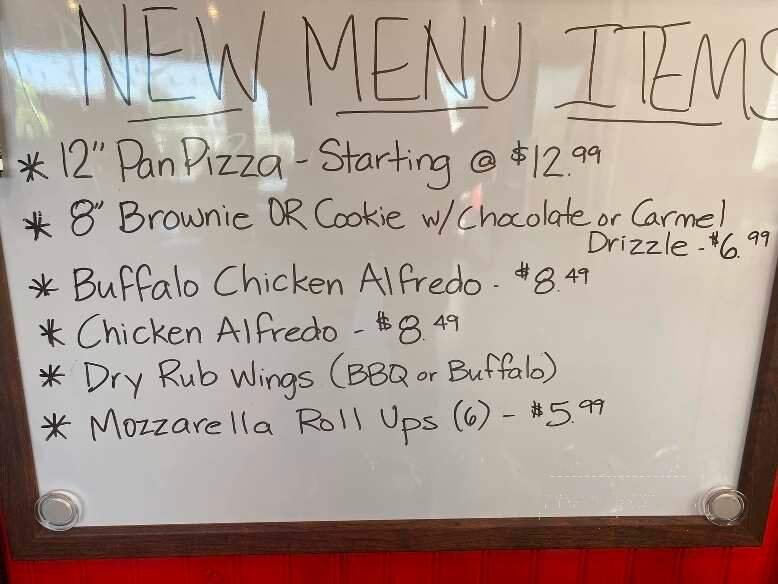 NEW MENU ITEMS
* 12" Pan Pizza - Starting @ $12.99
* 8" Brownie OR Cookie w/Chocolate or Carmel
Drizzle - $6.99
* Buffalo Chicken Alfredo - $8.49
* Chicken Alfredo - $8.49
* Dry Rub Wings (BBQ or Buffalo)
* Mozzarella Roll Ups (6) - $5.99